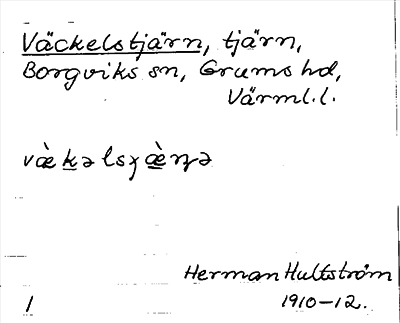 Väckelstjärn, tjärn,
Borgviks sn, Grums hd,
Värml.l.
Herman Hultström
1910-12.
1